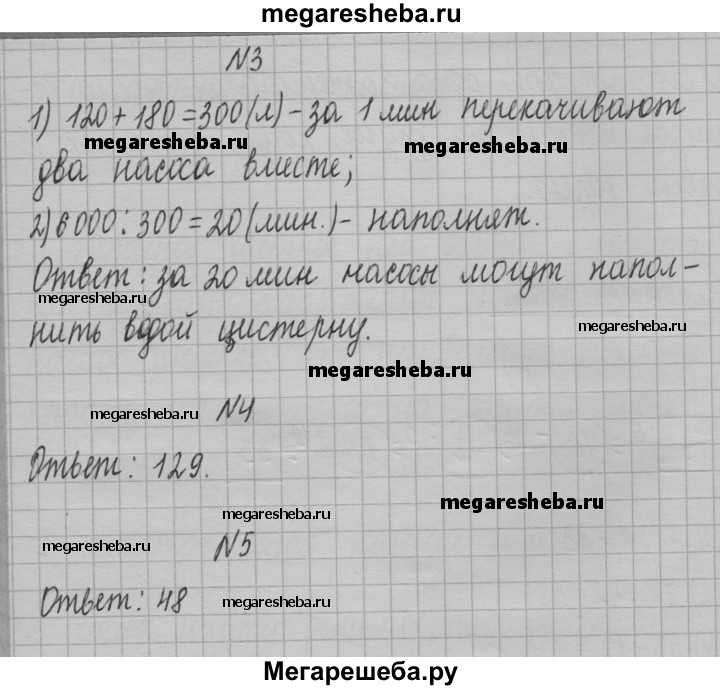 megaresheba.ru
N3
1) 120 + 180 = 300 (л) - за 1 мин перекачивают
megaresheba.ru megaresheba.ru
два насоса вместе;
2) 6000 : 300 = 20 (мин.) - наполнят.
Ответ: за 20 мин насосы могут напол-
megaresheba.ru megaresheba.ru
нить водой цистерну.
megaresheba.ru
megaresheba.ru N4
Ответ: 129.
megaresheba.ru megaresheba.ru
megaresheba.ru N5
Ответ: 48 megaresheba.ru
Мегарешеба.ру